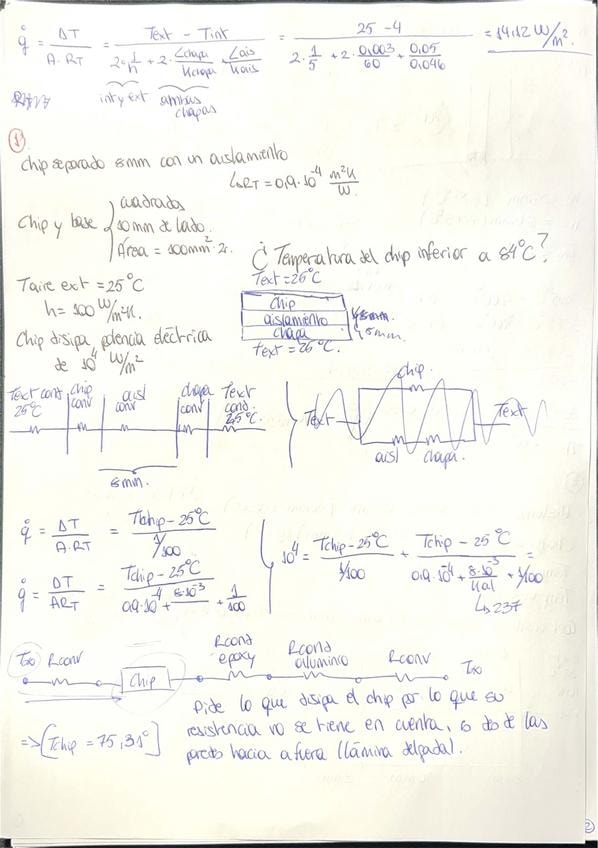 q̇ = ΔT / A·RT = Text - Tint / 2·1/h + 2·Lchapa/Kchapa + Lais/Kais = 25-4 / 2·1/5 + 2·0,003/60 + 0,05/0,046 = 14,12 W/m².
int y ext ambas
chapas
1
Chip separado 8mm con un aislamiento
↳ RT = 0,9·10⁻⁴ m²K/W
Chip y base
cuadrados
10mm de lado.
Área = 100mm²
¿Temperatura del chip inferior a 84°C?
Taire ext = 25°C
h = 100 W/m²K.
Chip disipa potencia eléctrica
de 10⁴ W/m²
Text = 25°C
chip
aislamiento
chapa
8mm.
Text = 25°C.
Text conv 25°C
chip conv
aisl conv
chapa conv
Text cond. 25°C
8mm.
chip.
Text
Text
aisl chapa.
q̇ = ΔT / A·RT = Tchip - 25°C / 1/100
q̇ = ΔT / A·RT = Tchip - 25°C / 0,9·10⁻⁴ + 8·10⁻³ + 1/100
10⁴ = Tchip - 25°C / 1/100 + Tchip - 25°C / 0,9·10⁻⁴ + 8·10⁻³/Kal + 1/100 =
↳ 237
T∞ Rconv Chip Rcond epoxy Rcond aluminio Rconv T∞
Pide lo que disipa el chip por lo que su
=> [Tchip = 75,31°
resistencia no se tiene en cuenta, de las
hacia afuera (lámina delgada).
2